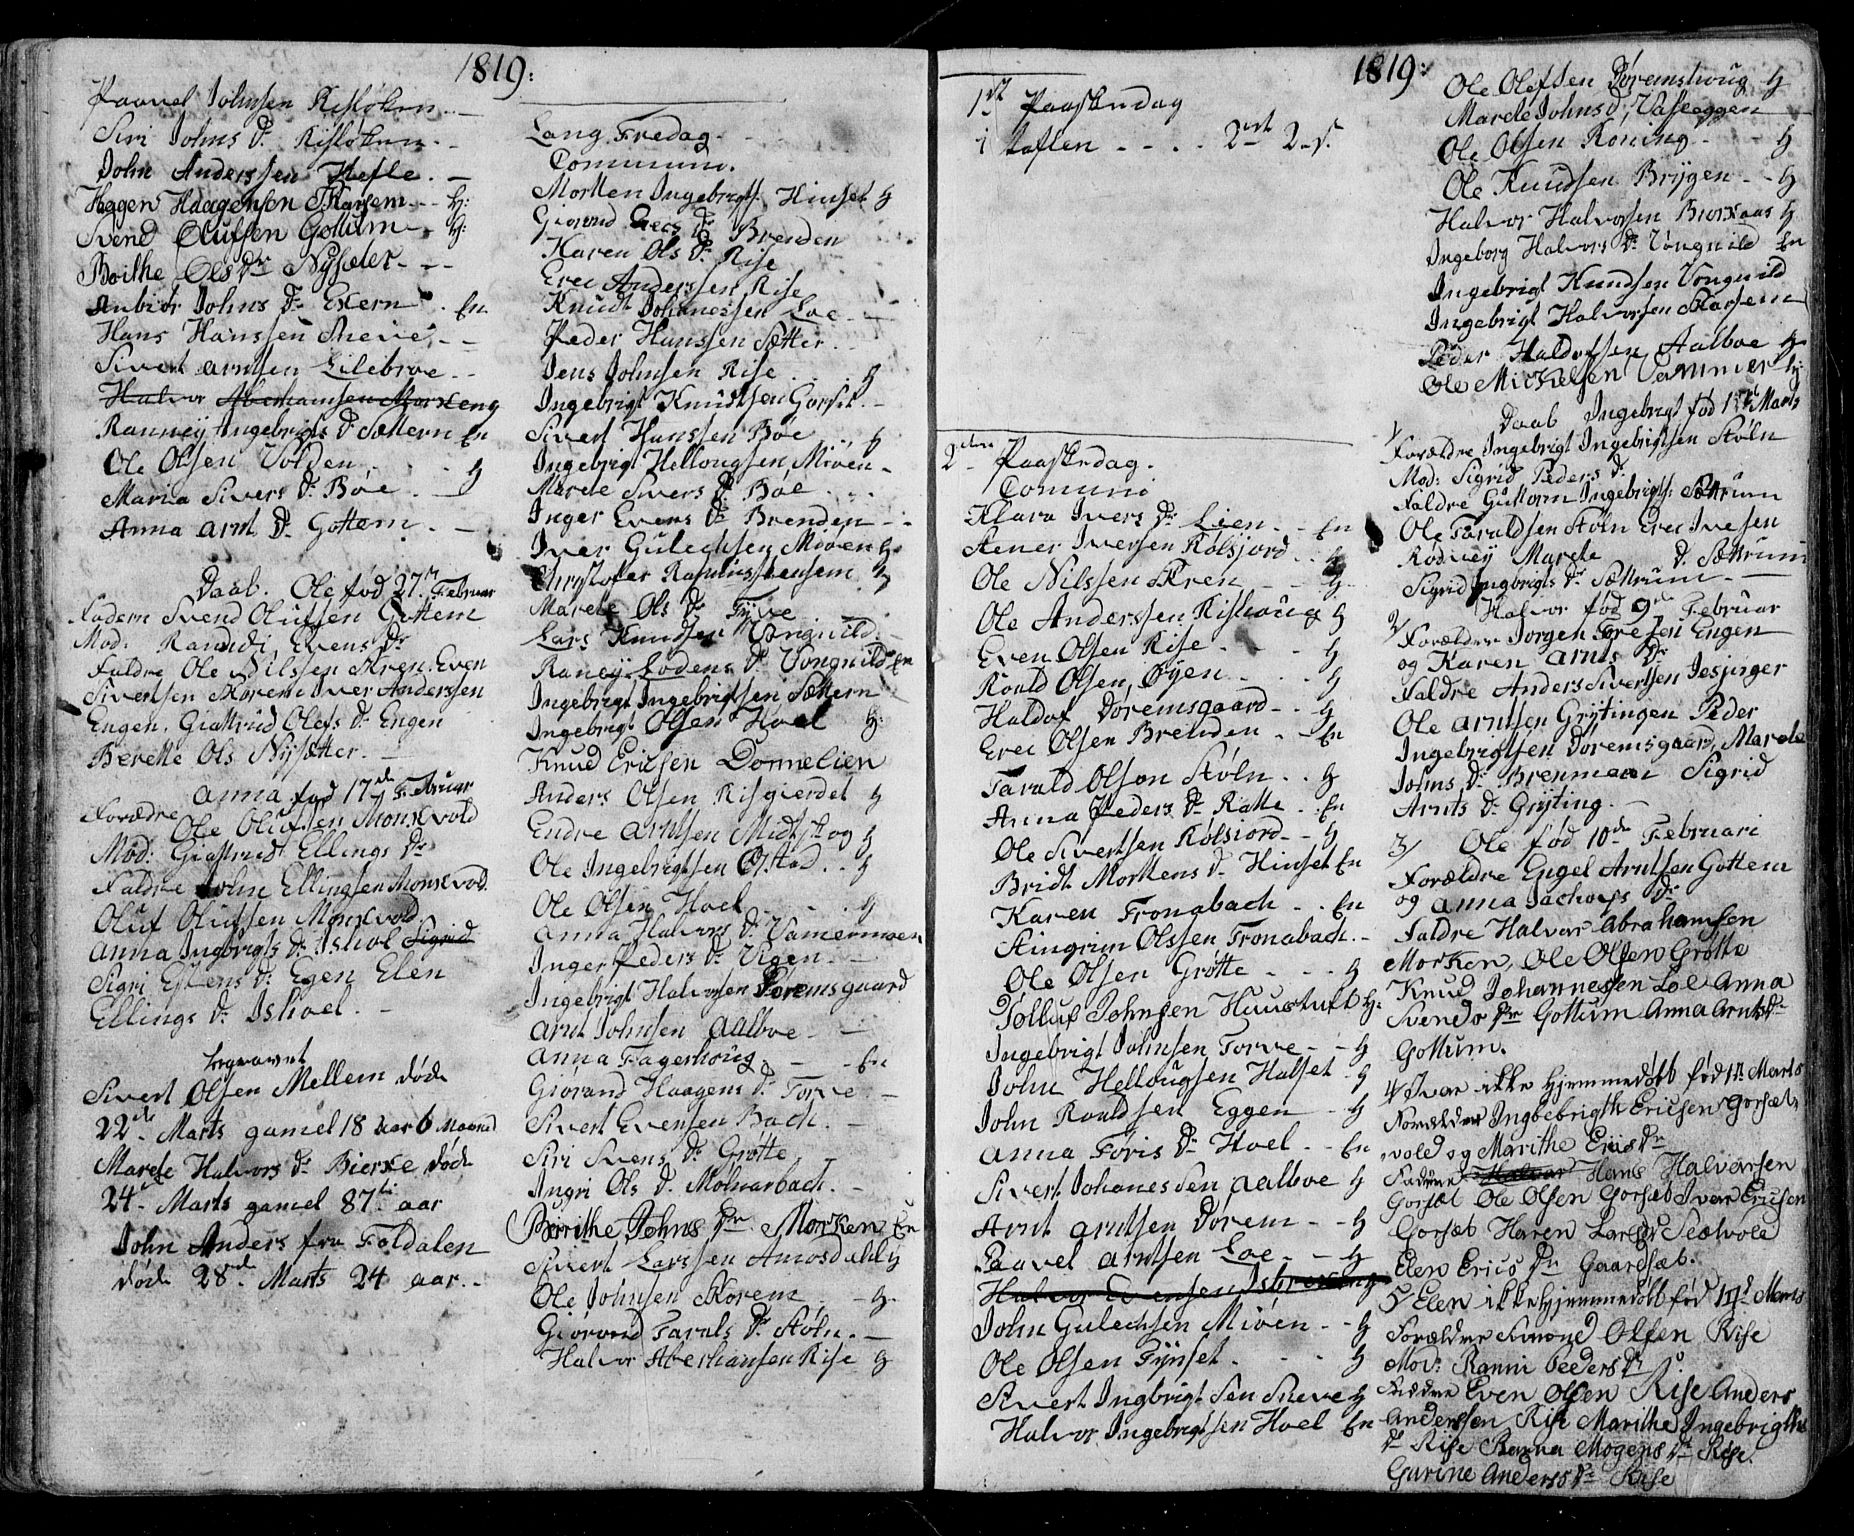 1819:
Paavel Johnsen Risløken
Siri Johns Dr Risløken
John Anderssen Hefle
Haggen Haagensen Skarsem H:
Svend Olufsen Gottem H:
Berithe Ols Dr Nysæter
Anbiør Johns Dr Exern En
Hans Hanssen Sneve
Sivert Arntsen Lilebroe
Halvor Aberhamsen Morkeng
Ranney Ingebrigts Dr Sættern En
Ole Olsen Volden H
Maria Sivers Dr Bøe
Anna Arnt Dr Gottem
Daab. Ole fød 27de Februar
Fadern Svend Olufsen Gottem
Mod: Randi Evens Dr
Faldre Ole Nilssen Skren Even
Sivertsen Skorem Iver Anderssen
Engen, Giøttrud Olefs Dr Engen
Berette Ols Nysætter
Anna fød 17de Februar
Forældre Ole Olufsen Monskvold
Mod: Giøttrud Ellings Dr
Faldre John Ellingsen Monskvold
Oluf Olufsen Monskvold
Anna Ingbrigts Dr Ishol Sigrid
Sigri Estens Dr Egen Elen
Ellings Dr Ishoel
begravet
Sivert Olsen Mellem døde
22de Marts gamel 18 aar 6 Maaned
Marete Halvors Dr Bierke døde
24de Marts gamel 87ti aar
John Anders fra Foldalen
døde 28de Marts 24 aar
Lang Fredag
Communi.
Morten Ingebrigts. Hinset H
Giorond Erecs Dr Brenden
Karen Ols Dr Rise
Erec Anderssen Rise
Knudt Johanessen Loe
Peder Hanssen Sætter
Jens Johnsen Rise H
Ingebrigt Knudtsen Gorset
Sivert Hanssen Bøe H
Ingebrigt Hellougsen Mioen
Marete Sivers Dr Bøe
Inger Evens Dr Brenden
Iver Gulechsen Mioen H
Christofer Rasmussen H
Marete Ols Dr Fyve
Lars Knudsen Vongnild
Raney Lodens Dr Vongnild En
Ingebrigt Ingebrigtsen Sættern
Ingebrigt Olsen Hoel H:
Knud Ericsen Donnelien
Anders Olsen Risgierdet H
Endre Arntsen Midtskog H
Ole Ingebrigtsen Opstad H
Ole Olsen Hoel H
Anna Halvors Dr Vamermoen
Inger Peders Dr Vigen
Ingebrigt Halvorsen Doremsgaard
Arnt Johnsen Aalboe
Anna Fagerhoug En
Giorand Haagens Dr Torve
Sivert Evensen Bach
Siri Svens Dr Grøtte
Ingri Ols D. Molnarbach
Berithe Johns Dr Morken En
Sivert Larssen Amosdahl H
Ole Johnsen Skorem H.
Giorond Tarals Dr Støln
Halvor Aberhansen Rise H
1819:
1st Paaskedag
i Taflen 2rdt 2s.
2den Paaskedag.
Comuni
Klara Ivers Dr Lien En
Stener Iversen Rolsjord H
Ole Nilssen Skren H
Ole Anderssen Rishoug H
Even Olsen Rise H
Roald Olsen, Øyen H
Haldof Doremsgaard H
Erec Olsen Brenden En
Tarald Olson Støln H
Anna Peders Dr Ratte En
Ole Sivertsen Rolsiord H
Bridt Mortens Dr Hinset En
Karen Tronabach En
Stingrim Olssen Tronabach
Ole Olsen Grøtte H
Tølluf Johnsen Huustuft H:
Ingebrigt Johnsen Torve H
John Hellougsen Halset H
John Roaldsen Eggen H
Anna Toris Dr Hoel En
Sivert Johanessen Aalboe H
Arnt Arntsen Dorem H
Paavel Arntsen Loe H
Halvor Evensen
John Gulechsen Mioen H
Ole Olsen Tynset H
Sivert Ingbrigtsen Sneve H
Halvor Ingebrigtsen Hoel En
Ole Olefsen Doremshoug H
Marete Johns d, Vaseggen
Ole Olsen Roning H
Ole Knudsen Brygen H
Halvor Halvorsen Biørkaas H
Ingeborg Halvors Dr Vongnild En
Ingebrigt Knudsen Vongnild
Ingebrigt Halvorsen Skarsem
Peder Haldorsen Aalboe H
Ole Mickelsen Vammer H
Daab Ingebrigt fød 15de Marts
1/ Forældre Ingebrigt Ingebrigtsen Støln
Mod: Sigrid Peders Dr
Faldre Guttorm Ingebrigts: Sættrum
Ole Taraldsen Støln Erec Ivesen
Rodvey Marete D. Sættrum
Sigrid Ingbrigts Dr Sættrum
2/ Halvor fød 9de Februar
Forældre Jorgen Toresen Engen
og Karen Arnts Dr
Faldre Anders Sivertsen Jesjorger
Ole Arntsen Grytingen Peder
Ingebrigtsen Doremsgaard, Marete
Johns Dr Brenmoen Sigrid
Arnts Dr Gryting
3/ Ole fød 10de Februari
Forældre Engel Arntsen Gottem
og Anna Jachops Dr
Faldre Halvor Abrahamsen
Morken, Ole Olsen Grøtte
Knud Johannessen Loe Anna
Svends Dr Gottum Anna Arnts Dr
Gottum.
4 Ivar ikke hjemmedøbt fød 14 Marts
Forældre Ingbebrigth Ericsen Gorset
vold og Marithe Erics Dr
Faddre Halvar Hans Halvarsen
Gorsæt Ole Olsen Gorsæt Ivar Ericsen
Gorsæt Haren Larsdr Sætvole
Elen Erics Dr Gaardsæt.
5 Elen ikke hjemmedøbt fød 14de Marts
Forældre Simond Olsen Rise
Mod: Ranni Peders Dr
Faddre Even Olsen Rise Anders
Andersen Rise Marithe Ingebrigths
Dr Rise Ranna Mogens Dr Rise.
Gurine Anders Dr Rise